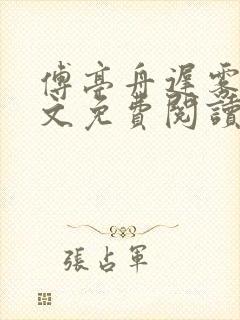 傅亭舟遲霧
文免費閱讀
張占軍